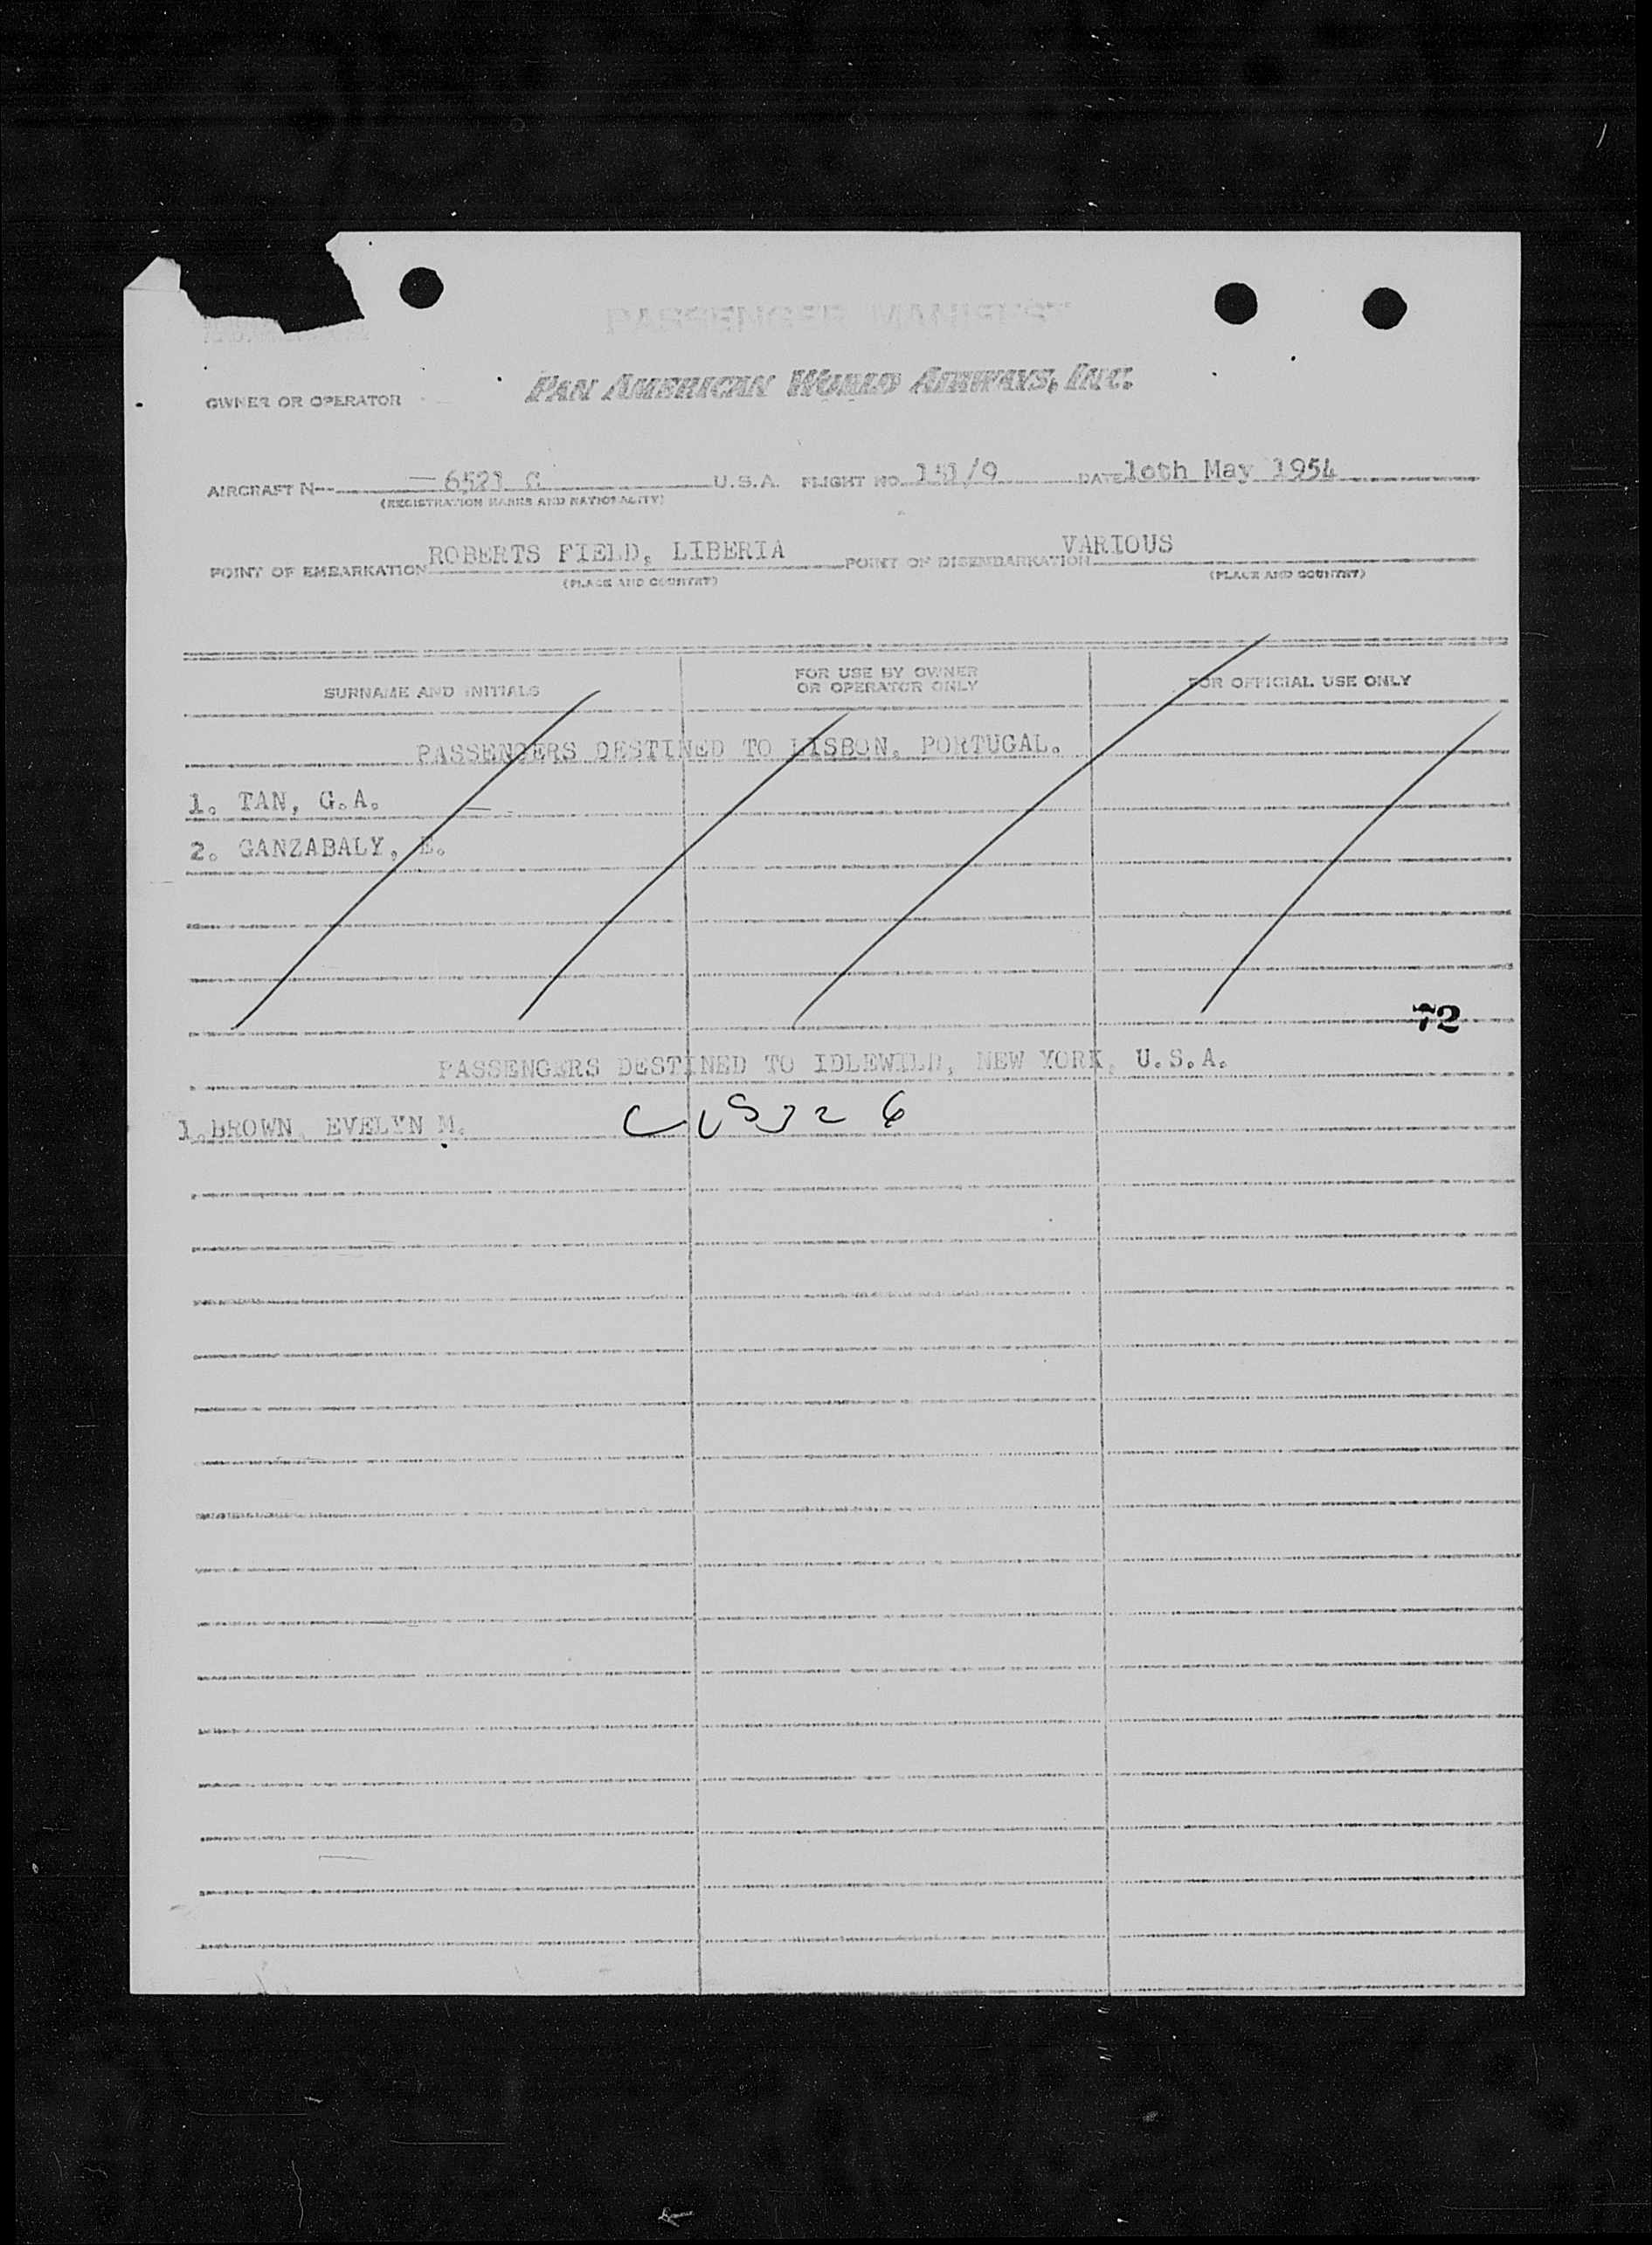 PASSENGER MANIFEST
OWNER OR OPERATOR PAN AMERICAN WORLD AIRWAYS, INC.
AIRCRAFT N-- 6521 C U.S.A. FLIGHT NO. 151/9 DATE 10th May 1954
(REGISTRATION MARKS AND NATIONALITY)
POINT OF EMBARKATION ROBERTS FIELD, LIBERIA POINT OF DISEMBARKATION VARIOUS
(PLACE AND COUNTRY) (PLACE AND COUNTRY)
SURNAME AND INITIALS FOR USE BY OWNER OR OPERATOR ONLY FOR OFFICIAL USE ONLY
PASSENGERS DESTINED TO LISBON, PORTUGAL.
1. TAN, G.A.
2. GANZABALY, E.
72
PASSENGERS DESTINED TO IDLEWILD, NEW YORK, U.S.A.
1.BROWN, EVELYN M.